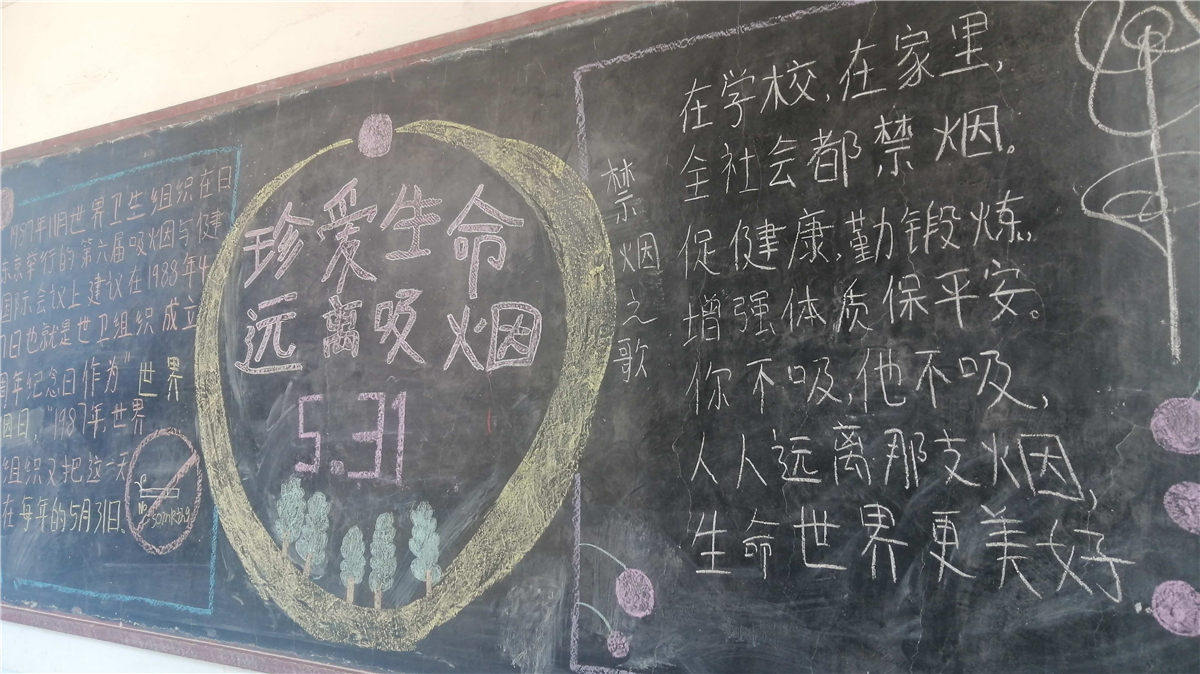 1987年11月世界卫生组织在日
东京举行的第六届吸烟与健
国际会议上建议在1988年4
7日也就是世卫组织成立
周年纪念日作为"世界
烟日,"1987年,世界
组织又把这一天
在每年的5月31日。
No
somking
珍爱生命
远离吸烟
5.31
禁烟之歌
在学校,在家里,
全社会都禁烟。
促健康,勤锻炼。
增强体质保平安。
你不吸,他不吸,
人人远离那支烟,
生命世界更美好.